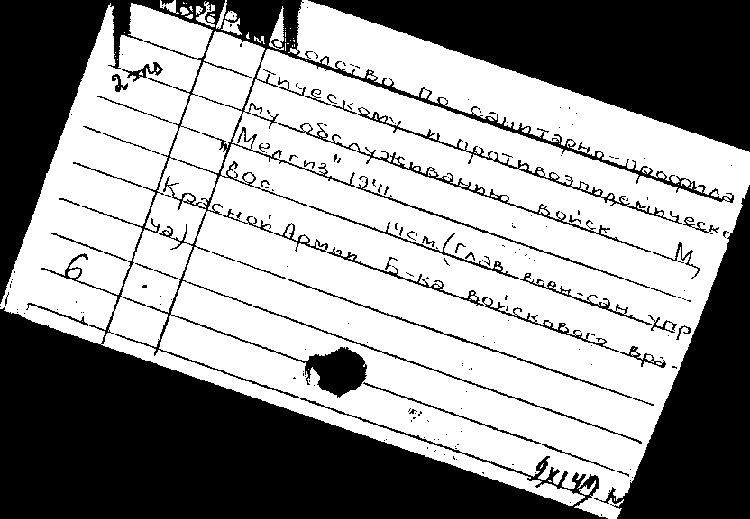 2 экз
Руководство по санитарно-профила
тическому и противоэпидемическо
му обслуживанию войск. М,
"Медгиз," 1941.
80с. 14см. (Глав. воен-сан. упр
Красной Армии Б-ка войскового вра-
ча)
6